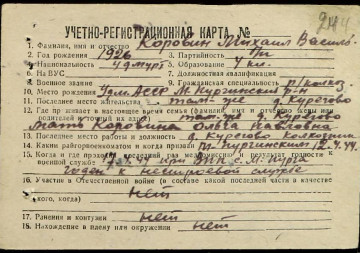 УЧЕТНО-РЕГИСТРАЦИОННАЯ КАРТА №
1. Фамилия, имя и отчество Коровин Михаил Василь
2. Год рождения 1926 3. Партийность б/п
4. Национальность удмурт 5. Образование 4 кл.
6. На ВУС 7. Должностная квалификация
8. Военное звание 9. Гражданская специальность р/колхоз
10. Место рождения Удм АССР М. Пургинский р-н
11. Последнее место жительства там-же д. Курегово
12. Где проживает в настоящее время семья (фамилия, имя и отчество жены или родителей) там-же д. Курегово
мать Коровина Ольга
13. Последнее место работы и должность д. Курегово колхозник
14. Каким райгорвоенкоматом и когда призван М. Пургинским 12.4.44
15. Когда и где проходил последний раз медкомиссию и результат годности к
военной службе при с. М. Пурга
годен к нестроевой службе
16. Участие в Отечественной войне (в составе какой последней части и в качестве
кого, когда) нет
17. Ранения и контузии нет
18. Нахождение в плену или окружении нет